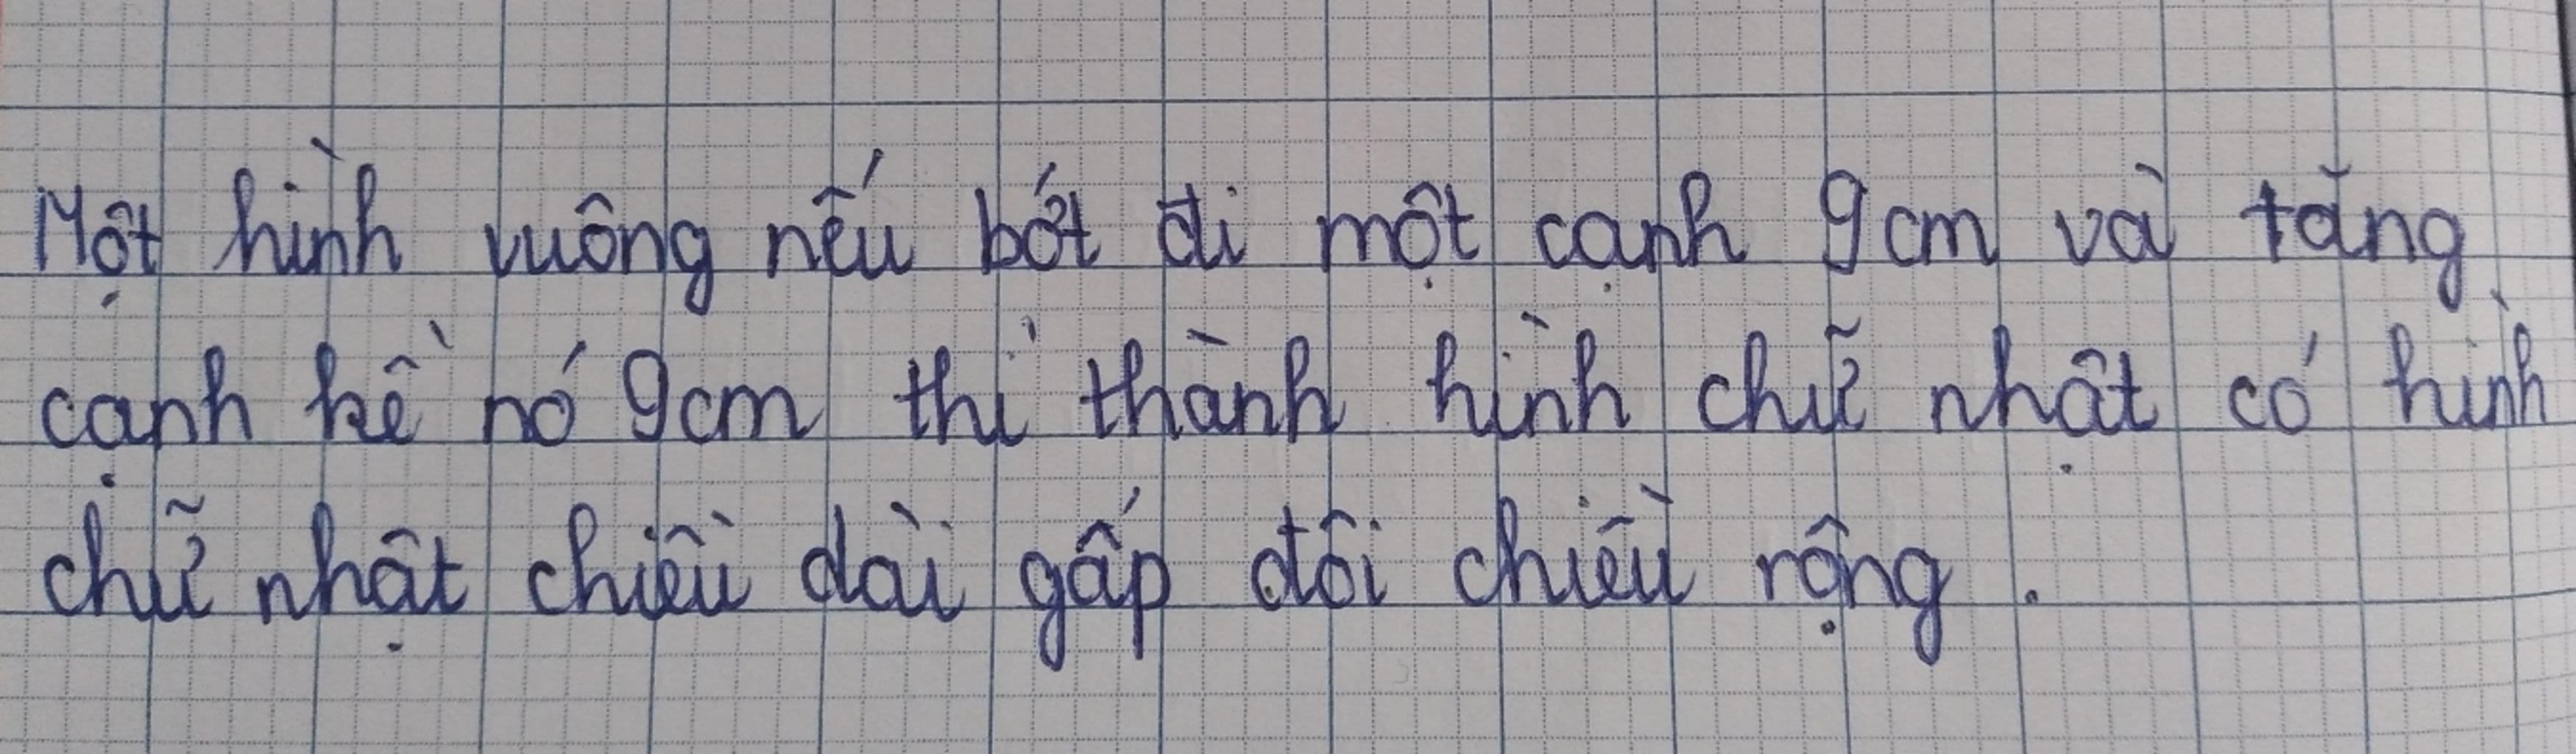 Một hình vuông nếu bớt đi một cạnh 9cm và tăng
cạnh kề nó 9cm thì thành hình chữ nhật có hình
chữ nhật chiều dài gấp đôi chiều rộng.